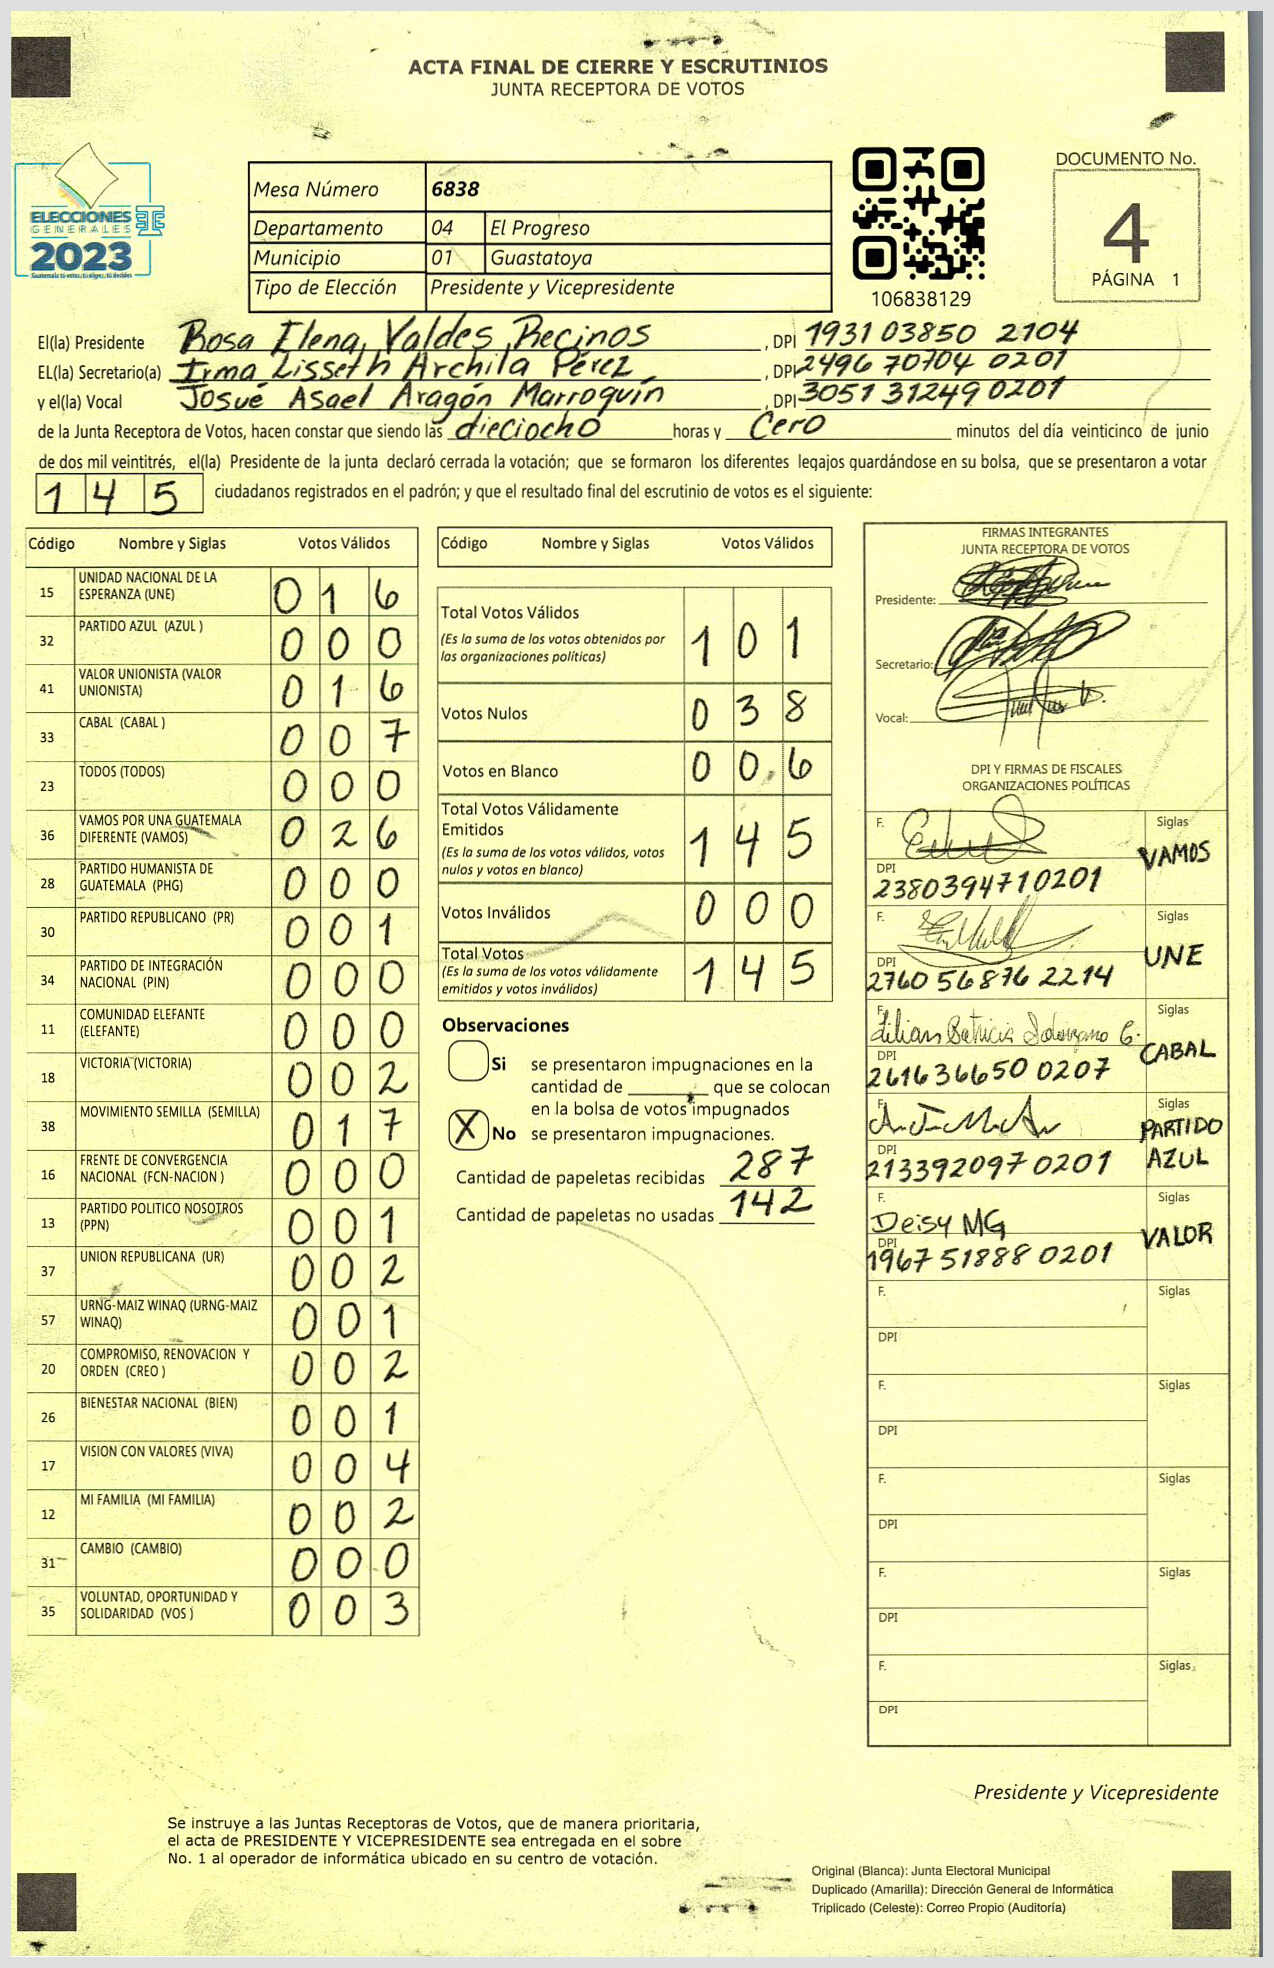 ACTA FINAL DE CIERRE Y ESCRUTINIOS
JUNTA RECEPTORA DE VOTOS
ELECCIONES
GENERALES
2023
Mesa Número 6838
Departamento 04 El Progreso
Municipio 01 Guastatoya
Tipo de Elección Presidente y Vicepresidente
106838129
DOCUMENTO No.
4
PÁGINA 1
El(la) Presidente Rosa Elena Valdes Recinos , DPI 1931 03850 2104
EL(la) Secretario(a) Irma Lisseth Archila Pérez , DPI 2496 70704 0201
y el(la) Vocal Josué Asael Aragón Marroquín , DPI 3051 31249 0201
de la Junta Receptora de Votos, hacen constar que siendo las dieciocho horas y Cero minutos del día veinticinco de junio
de dos mil veintitrés, el(la) Presidente de la junta declaró cerrada la votación; que se formaron los diferentes legajos guardándose en su bolsa, que se presentaron a votar
145 ciudadanos registrados en el padrón; y que el resultado final del escrutinio de votos es el siguiente:
Código Nombre y Siglas Votos Válidos
15 UNIDAD NACIONAL DE LA ESPERANZA (UNE) 016
32 PARTIDO AZUL (AZUL ) 000
41 VALOR UNIONISTA (VALOR UNIONISTA) 016
33 CABAL (CABAL ) 007
23 TODOS (TODOS) 000
36 VAMOS POR UNA GUATEMALA DIFERENTE (VAMOS) 026
28 PARTIDO HUMANISTA DE GUATEMALA (PHG) 000
30 PARTIDO REPUBLICANO (PR) 001
34 PARTIDO DE INTEGRACIÓN NACIONAL (PIN) 000
11 COMUNIDAD ELEFANTE (ELEFANTE) 000
18 VICTORIA (VICTORIA) 002
38 MOVIMIENTO SEMILLA (SEMILLA) 017
16 FRENTE DE CONVERGENCIA NACIONAL (FCN-NACION ) 000
13 PARTIDO POLITICO NOSOTROS (PPN) 001
37 UNION REPUBLICANA (UR) 002
57 URNG-MAIZ WINAQ (URNG-MAIZ WINAQ) 001
20 COMPROMISO, RENOVACION Y ORDEN (CREO ) 002
26 BIENESTAR NACIONAL (BIEN) 001
17 VISION CON VALORES (VIVA) 004
12 MI FAMILIA (MI FAMILIA) 002
31 CAMBIO (CAMBIO) 000
35 VOLUNTAD, OPORTUNIDAD Y SOLIDARIDAD (VOS ) 003
Código Nombre y Siglas Votos Válidos
Total Votos Válidos 101
(Es la suma de los votos obtenidos por
las organizaciones políticas)
Votos Nulos 038
Votos en Blanco 006
Total Votos Válidamente
Emitidos 145
(Es la suma de los votos válidos, votos
nulos y votos en blanco)
Votos Inválidos 000
Total Votos 145
(Es la suma de los votos válidamente
emitidos y votos inválidos)
Observaciones
Si se presentaron impugnaciones en la
cantidad de ______ que se colocan
en la bolsa de votos impugnados
X No se presentaron impugnaciones.
Cantidad de papeletas recibidas 287
Cantidad de papeletas no usadas 142
FIRMAS INTEGRANTES
JUNTA RECEPTORA DE VOTOS
Presidente:
Secretario:
Vocal:
DPI Y FIRMAS DE FISCALES
ORGANIZACIONES POLÍTICAS
F. Siglas VAMOS
DPI 2380394710201
F. Siglas UNE
DPI 2760 56876 2214
F. Lilian Patricia Siglas CABAL
DPI 261636650 0207
F. Siglas PARTIDO AZUL
DPI 213392097 0201
F. Deisy MG Siglas VALOR
DPI 1967 51888 0201
F. Siglas
DPI
F. Siglas
DPI
F. Siglas
DPI
F. Siglas
DPI
F. Siglas
DPI
Presidente y Vicepresidente
Se instruye a las Juntas Receptoras de Votos, que de manera prioritaria,
el acta de PRESIDENTE Y VICEPRESIDENTE sea entregada en el sobre
No. 1 al operador de informática ubicado en su centro de votación.
Original (Blanca): Junta Electoral Municipal
Duplicado (Amarilla): Dirección General de Informática
Triplicado (Celeste): Correo Propio (Auditoría)